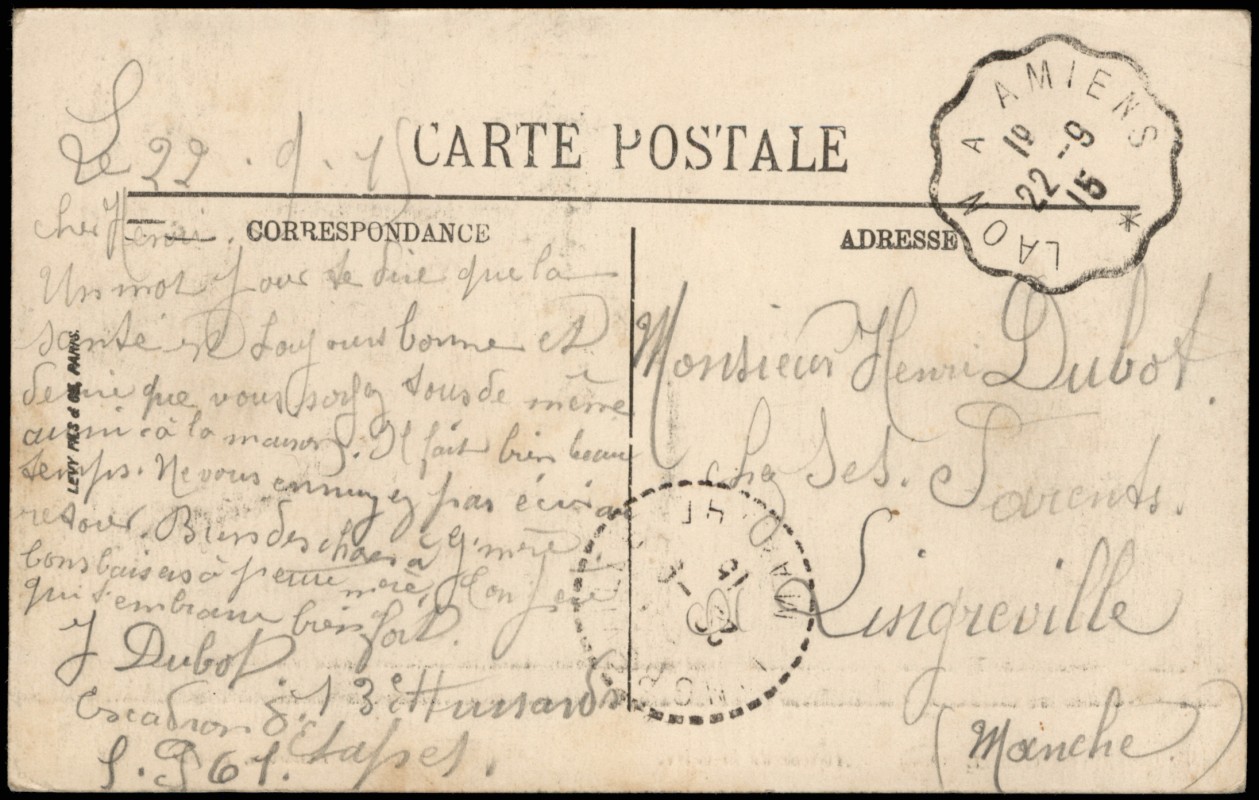 CARTE POSTALE
CORRESPONDANCE
ADRESSE
LAON A AMIENS
22 -9
15
LEVY FILS & CIE, PARIS.
Le 22. 9. 15
cher Henri.
Un mot pour te dire que la
santé est toujours bonne et
desire que vous soyez tous de même
aussi à la maison. Il fait bien beau
temps. Ne vous ennuyez pas
retour. Bien des choses à G. mère
bons baisers à petite mère, ton père
qui t'embrasse bien fort.
J Dubot
Escadron d. 13e Hussards
Etapes.
S. P 61.
Monsieur Henri Dubot.
chez Ses. Parents.
Lingreville
(Manche)
MANCHE
15